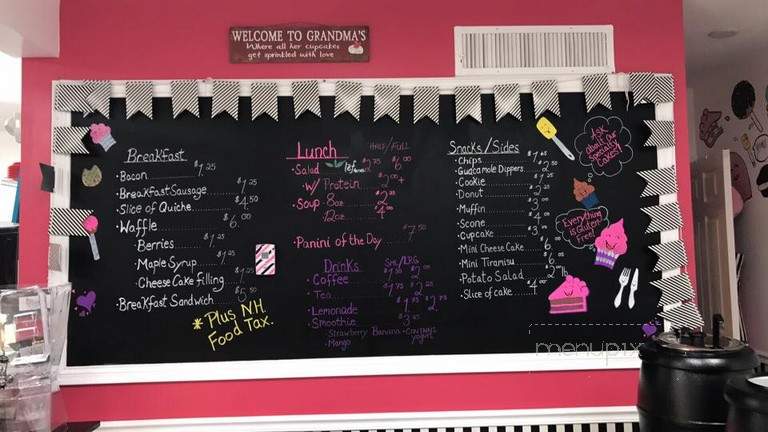 WELCOME TO GRANDMA'S
Where all her cupcakes
get sprinkled with love
Breakfast
• Bacon $1.25
• Breakfast Sausage $1.25
• Slice of Quiche $4.50
• Waffle $6.00
Berries $1.25
• Maple Syrup $1.25
• Cheese Cake filling $1.25
• Breakfast Sandwich $5.50
* Plus N.H.
Food Tax.
Lunch HALF/FULL
• Salad $6.00
w/ Protein $2.00+
• Soup 8oz $2.25
12oz $4.00
• Panini of the Day $7.50
Drinks SML/LRG
• Coffee
• Tea
• Lemonade
• Smoothie
Strawberry Banana • Contains yogurt
• Mango
Snacks/Sides
• Chips
• Guacamole Dippers
• Cookie
• Donut
• Muffin
• Scone
• Cupcake
• Mini Cheese Cake
• Mini Tiramisu
• Potato Salad
• Slice of cake
Ask
about our
Specialty
Cakes!
Everything
is Gluten
Free!
menupix